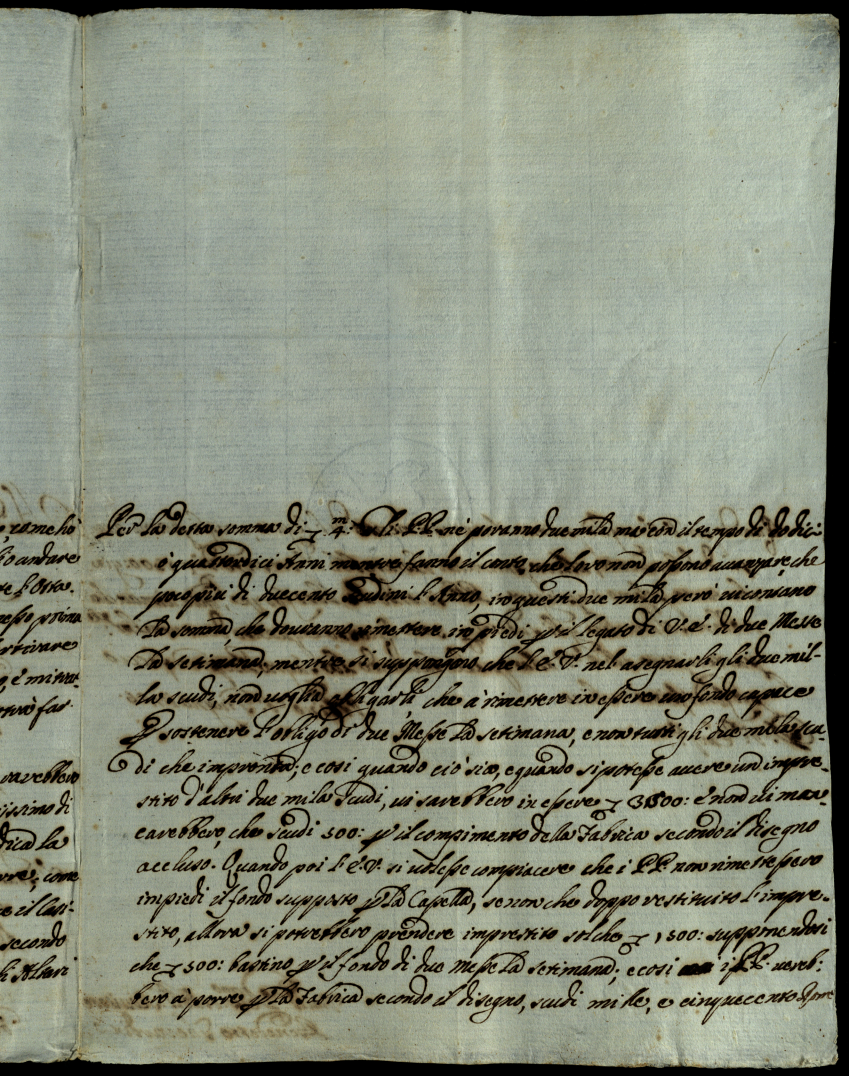 Per la detta somma di 4.m Gli PP. ne poranno due mila ma con il tempo di dodici
o quattordici Anni mentre fanno il conto, che loro non possono avanzare, che
poco più di duecento scudi l'Anno, in questi due mila però vi contano
la somma, che dovranno rimettere in piedi p il legato di V. E. di due Messe
la setimana, mentre si suppongono che l'E. V. nel asegnarli gli due mil-
la scudi, non voglia obligarli che à rimettere in essere un fondo capace
p sostenere l'obligo di due Messe la setimana, e non tutti gli due mila scu-
di che impronta; e cosi quando ciò sia, e quando si potesse avere un impre-
stito d'altri due mila scudi, vi sarebbero in essere 3500: e non vi man-
carebbero, che scudi 500: p il compimento della Fabrica secondo il disegno
accluso. Quando poi l'E. V. si volesse compiacere che i PP. non rimettessero
in piedi il fondo supposto p la Capella, se non che doppo restituito l'impre-
stito, allora si potrebbero prendere imprestito sol che 1500: supponendosi
che 500: bastino p il fondo di due Messe la setimana; e cosi i PP. vereb:
bero à porre p la Fabrica secondo il disegno, scudi mille, e cinquecento
ramehò
andare
prima
arrivare
far
sarebbero
issimo di
dica la
secondo
Altari